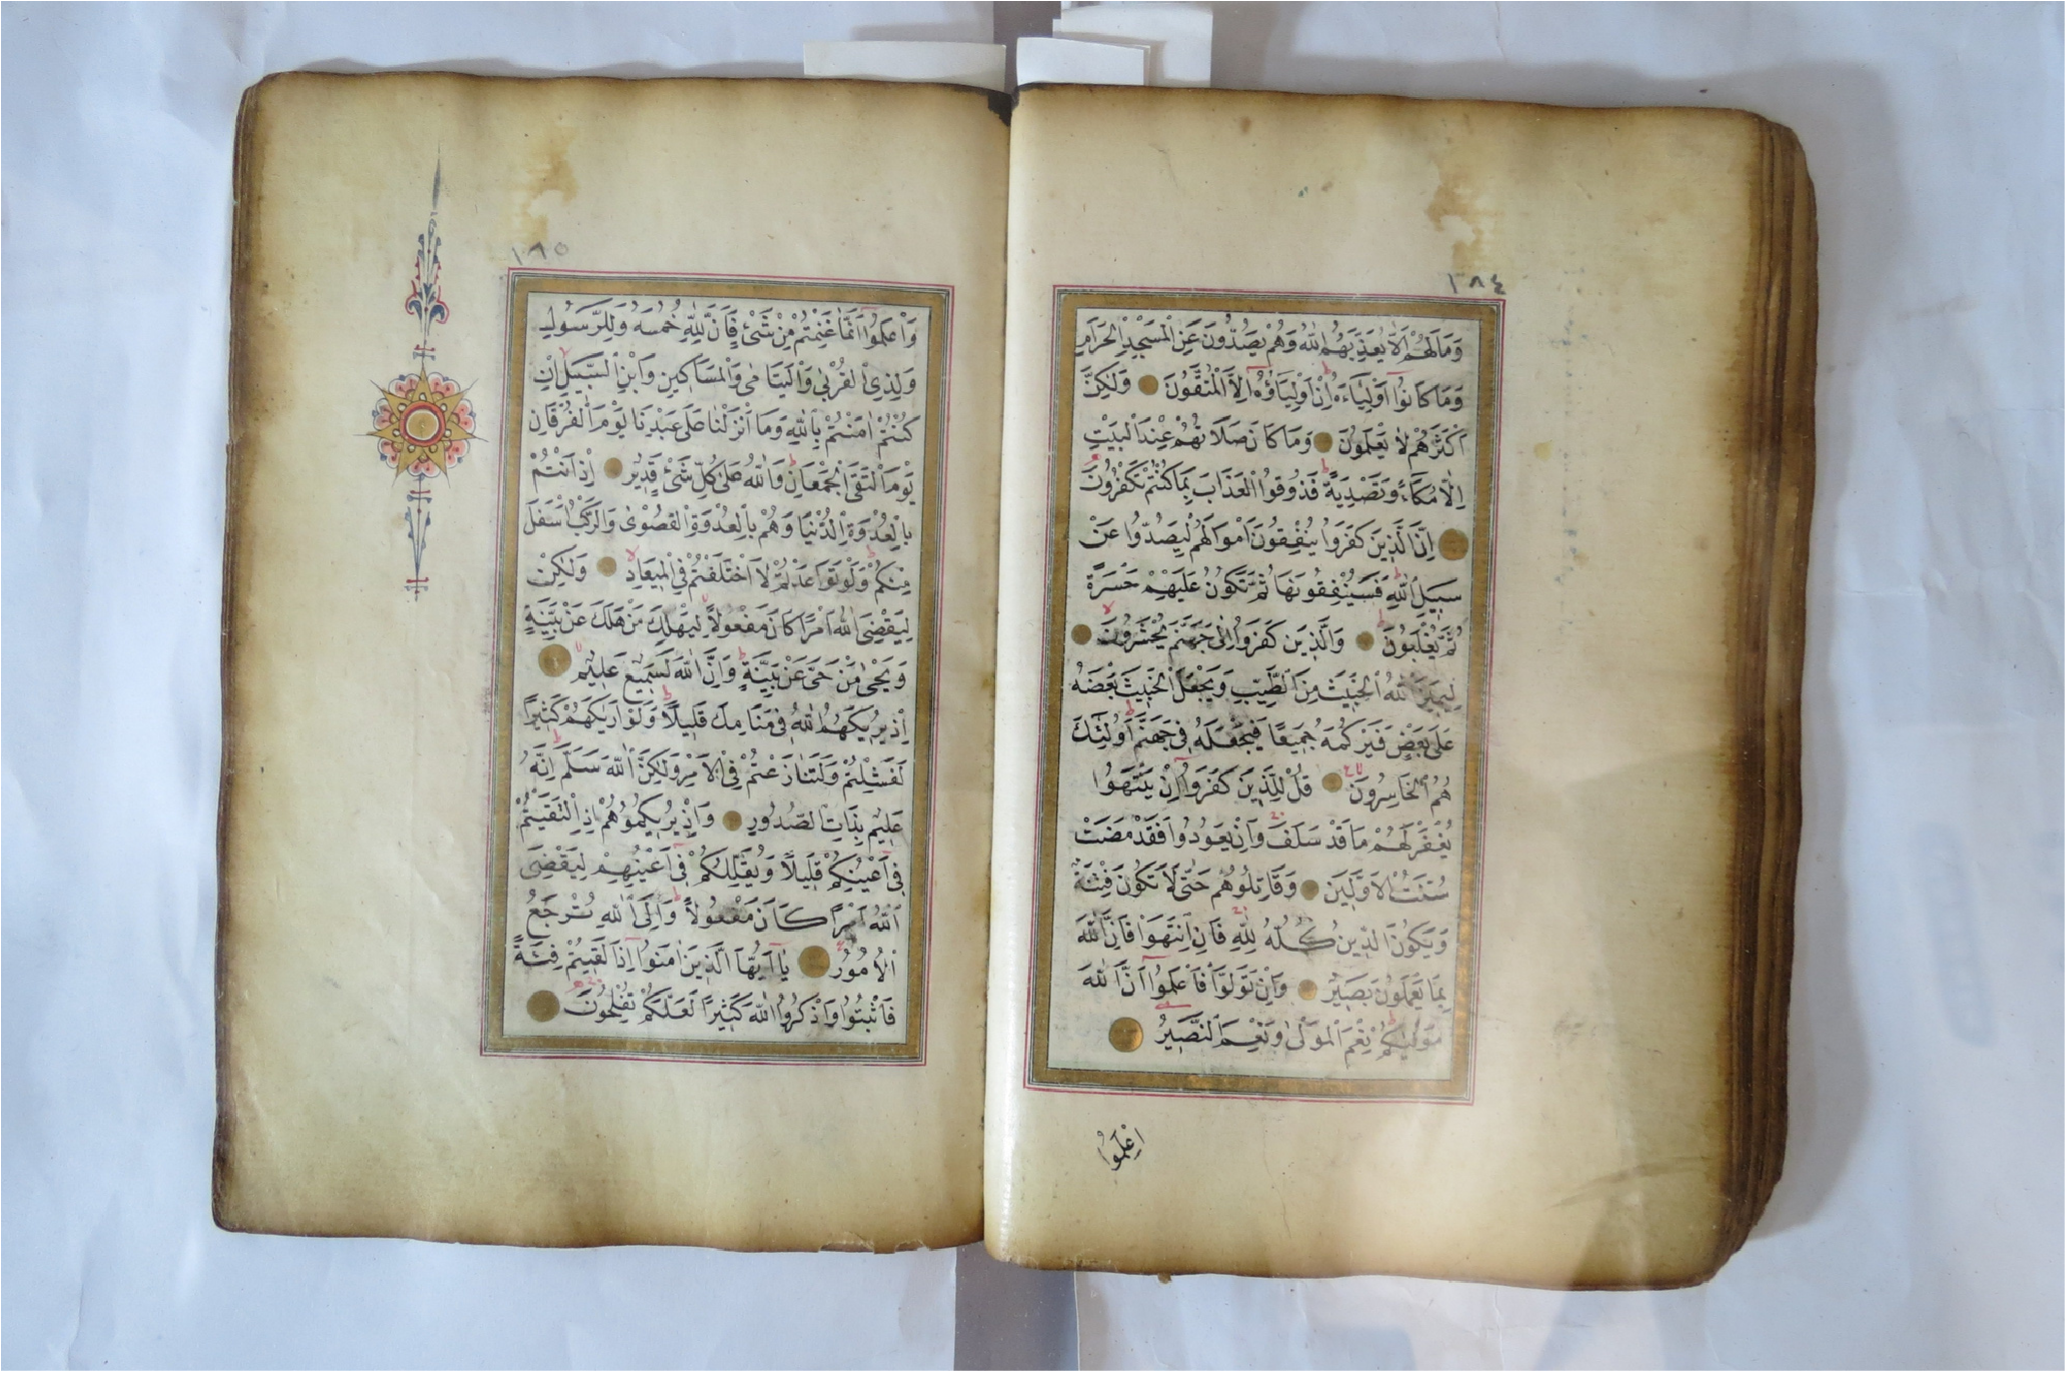 ١٨٤
وَمَا لَهُمْ اَلَّا يُعَذِّبَهُمُ اللّٰهُ وَهُمْ يَصُدُّونَ عَنِ الْمَسْجِدِ الْحَرَامِ
وَمَا كَانُوٓا اَوْلِيَٓاءَهُ اِنْ اَوْلِيَٓاؤُ۬هُٓ اِلَّا الْمُتَّقُونَ وَلٰكِنَّ
اَكْثَرَهُمْ لَا يَعْلَمُونَ وَمَا كَانَ صَلَاتُهُمْ عِنْدَ الْبَيْتِ
اِلَّا مُكَٓاءً وَتَصْدِيَةً فَذُوقُوا الْعَذَابَ بِمَا كُنْتُمْ تَكْفُرُونَ
اِنَّ الَّذِينَ كَفَرُوا يُنْفِقُونَ اَمْوَالَهُمْ لِيَصُدُّوا عَنْ
سَبِيلِ اللّٰهِ فَسَيُنْفِقُونَهَا ثُمَّ تَكُونُ عَلَيْهِمْ حَسْرَةً
ثُمَّ يُغْلَبُونَ وَالَّذِينَ كَفَرُوا اِلٰى جَهَنَّمَ يُحْشَرُونَ
لِيَمِيزَ اللّٰهُ الْخَبِيثَ مِنَ الطَّيِّبِ وَيَجْعَلَ الْخَبِيثَ بَعْضَهُ
عَلٰى بَعْضٍ فَيَرْكُمَهُ جَمِيعًا فَيَجْعَلَهُ فِي جَهَنَّمَ اُولٰٓئِكَ
هُمُ الْخَاسِرُونَ قُلْ لِلَّذِينَ كَفَرُٓوا اِنْ يَنْتَهُوا
يُغْفَرْ لَهُمْ مَا قَدْ سَلَفَ وَاِنْ يَعُودُوا فَقَدْ مَضَتْ
سُنَّتُ الْاَوَّلِينَ وَقَاتِلُوهُمْ حَتّٰى لَا تَكُونَ فِتْنَةٌ
وَيَكُونَ الدِّينُ كُلُّهُ لِلّٰهِ فَاِنِ انْتَهَوْا فَاِنَّ اللّٰهَ
بِمَا يَعْمَلُونَ بَصِيرٌ وَاِنْ تَوَلَّوْا فَاعْلَمُٓوا اَنَّ اللّٰهَ
مَوْلٰيكُمْ نِعْمَ الْمَوْلٰى وَنِعْمَ النَّصِيرُ
اعْلَمُوا
١٨٥
وَاعْلَمُٓوا اَنَّمَا غَنِمْتُمْ مِنْ شَيْءٍ فَاَنَّ لِلّٰهِ خُمُسَهُ وَلِلرَّسُولِ
وَلِذِي الْقُرْبٰى وَالْيَتَامٰى وَالْمَسَاكِينِ وَابْنِ السَّبِيلِ اِنْ
كُنْتُمْ اٰمَنْتُمْ بِاللّٰهِ وَمَا اَنْزَلْنَا عَلٰى عَبْدِنَا يَوْمَ الْفُرْقَانِ
يَوْمَ الْتَقَى الْجَمْعَانِ وَاللّٰهُ عَلٰى كُلِّ شَيْءٍ قَدِيرٌ اِذْ اَنْتُمْ
بِالْعُدْوَةِ الدُّنْيَا وَهُمْ بِالْعُدْوَةِ الْقُصْوٰى وَالرَّكْبُ اَسْفَلَ
مِنْكُمْ وَلَوْ تَوَاعَدْتُمْ لَاخْتَلَفْتُمْ فِي الْمِيعَادِ وَلٰكِنْ
لِيَقْضِيَ اللّٰهُ اَمْرًا كَانَ مَفْعُولًا لِيَهْلِكَ مَنْ هَلَكَ عَنْ بَيِّنَةٍ
وَيَحْيٰى مَنْ حَيَّ عَنْ بَيِّنَةٍ وَاِنَّ اللّٰهَ لَسَمِيعٌ عَلِيمٌ
اِذْ يُرِيكَهُمُ اللّٰهُ فِي مَنَامِكَ قَلِيلًا وَلَوْ اَرٰيكَهُمْ كَثِيرًا
لَفَشِلْتُمْ وَلَتَنَازَعْتُمْ فِي الْاَمْرِ وَلٰكِنَّ اللّٰهَ سَلَّمَ اِنَّهُ
عَلِيمٌ بِذَاتِ الصُّدُورِ وَاِذْ يُرِيكُمُوهُمْ اِذِ الْتَقَيْتُمْ
فِٓي اَعْيُنِكُمْ قَلِيلًا وَيُقَلِّلُكُمْ فِٓي اَعْيُنِهِمْ لِيَقْضِيَ
اللّٰهُ اَمْرًا كَانَ مَفْعُولًا وَاِلَى اللّٰهِ تُرْجَعُ
الْاُمُورُ يَٓا اَيُّهَا الَّذِينَ اٰمَنُٓوا اِذَا لَقِيتُمْ فِئَةً
فَاثْبُتُوا وَاذْكُرُوا اللّٰهَ كَثِيرًا لَعَلَّكُمْ تُفْلِحُونَ